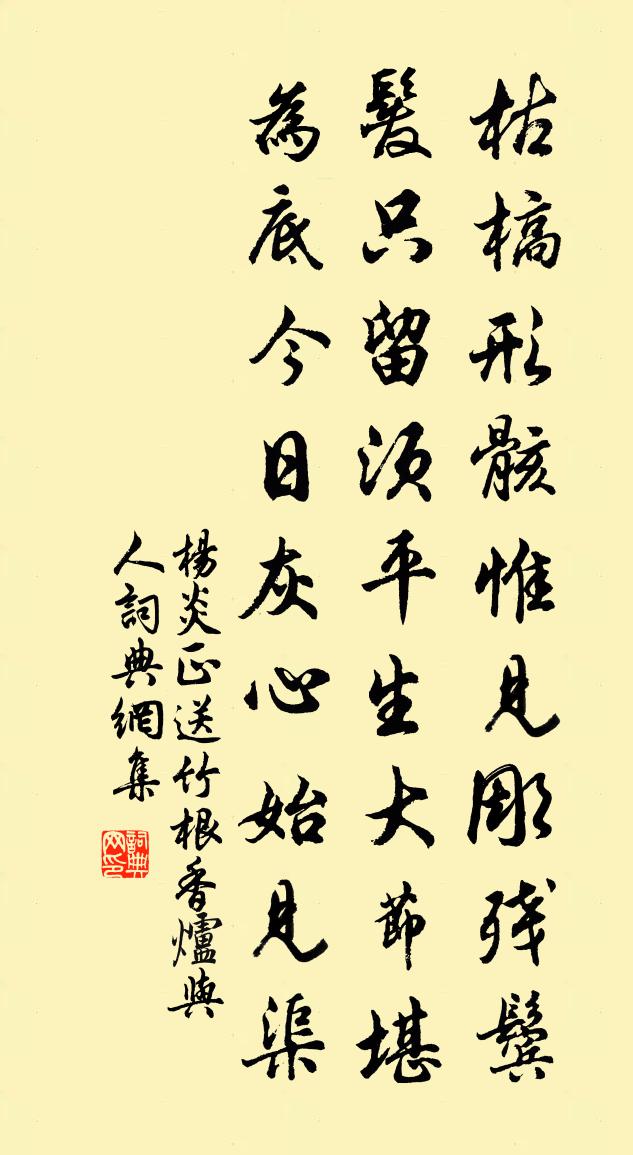 枯槁形骸惟見彫残鬢
髮只留須平生大節堪
為底今日灰心始見渠
楊炎正送竹根香爐與
人詞典網集
詞典
网印